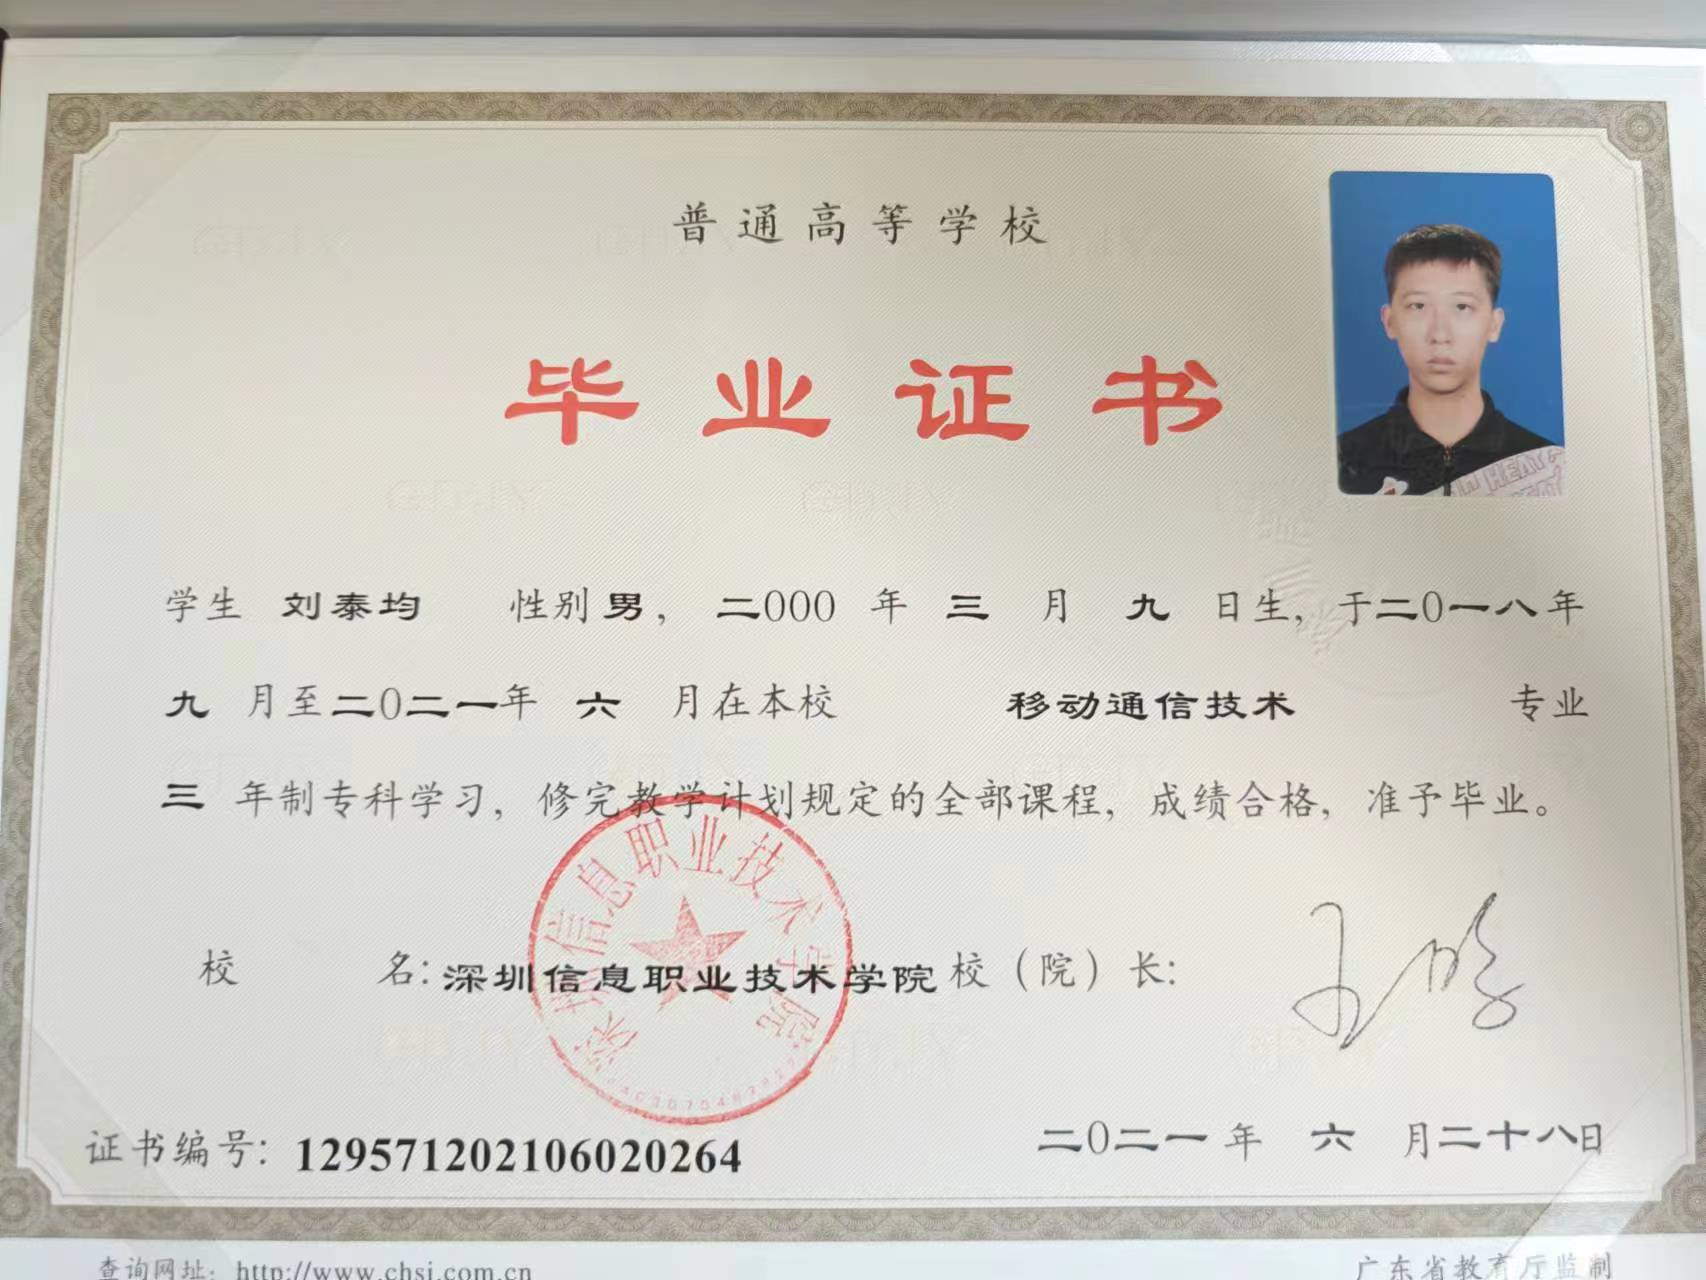 普通高等学校
毕业证书
学生 刘泰均 性别 男， 二000 年 三 月 九 日生，于二0一八年
九 月至二0二一年 六 月在本校 移动通信技术 专业
三 年制专科学习，修完教学计划规定的全部课程，成绩合格，准予毕业。
深圳信息职业技术学院
校 名：深圳信息职业技术学院 校（院）长：
证书编号：129571202106020264 二0二一 年 六 月二十八日
查询网址：http://www.chsi.com.cn 广东省教育厅监制